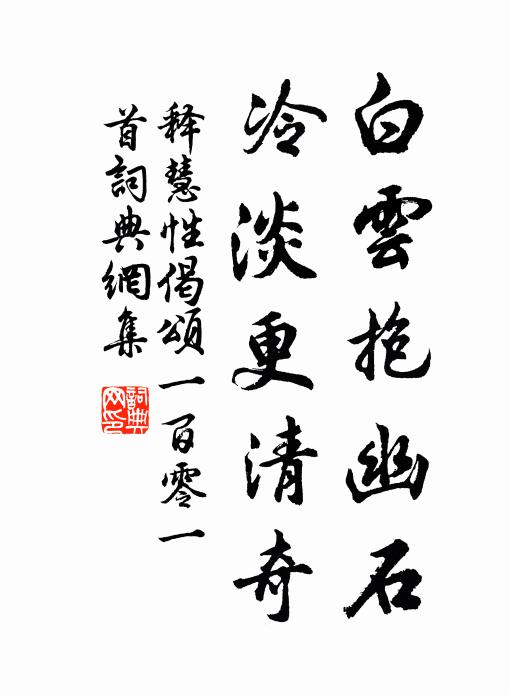 白雲抱幽石
冷淡更清奇
釋慧性偈頌一百零一
首詞典網集
詞典网印